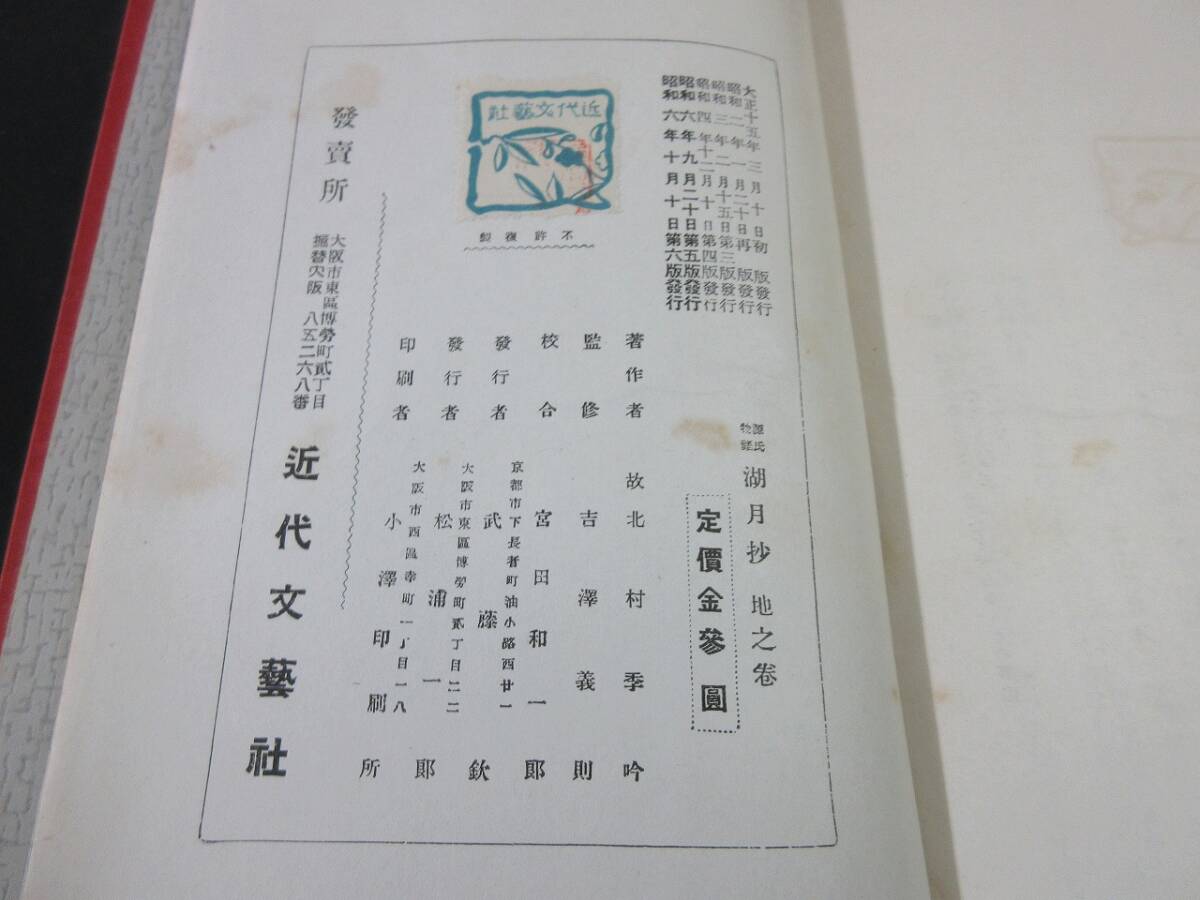 大正十五年三月十日初版發行
昭和二年一月二十日再版發行
昭和三年二月十五日第三版發行
昭和四年十二月十日第四版發行
昭和六年九月二十日第五版發行
昭和六年十月十日第六版發行
近代文藝社
不許復製
源氏物語 湖月抄 地之卷
定價金參圓
著作者 故北村季吟
監修 吉澤義則
校合 宮田和一郎
京都市下長者町油小路西廿一
發行者 武藤欽
大阪市東區博勞町貳丁目二二
發行者 松浦一郎
大阪市西區幸町一丁目一八
印刷者 小澤印刷所
發賣所
大阪市東區博勞町貳丁目
振替大阪八五二六八番
近代文藝社